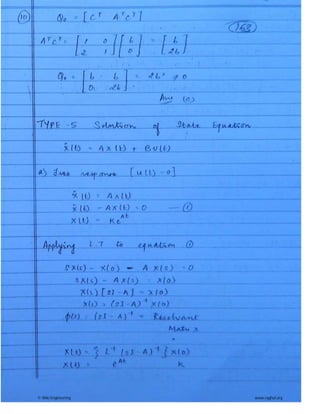 (10) Q₀ = [ Cᵀ AᵀCᵀ ]
AᵀCᵀ = [ 1 0 ; 2 1 ] [ b ; 0 ] = [ b ; 2b ]
Q₀ = [ b b ; 0 2b ] = 2b² ≠ 0
Ans (c)
TYPE - 5 Solution of State Equation
ẋ(t) = A x(t) + B U(t)
a) free response [ u(t) = 0 ]
ẋ(t) = A x(t)
ẋ(t) - A x(t) = 0 — (1)
x(t) = K eᴬᵗ
Applying L.T to equation (1)
S X(s) - X(0) - A X(s) = 0
S X(s) - A X(s) = X(0)
X(s) [ SI - A ] = X(0)
X(s) = (SI - A)⁻¹ X(0)
ϕ(s) = (SI - A)⁻¹ = Resolvent
Matrix
X(t) = { L⁻¹ (SI - A)⁻¹ } X(0)
X(t) = eᴬᵗ K